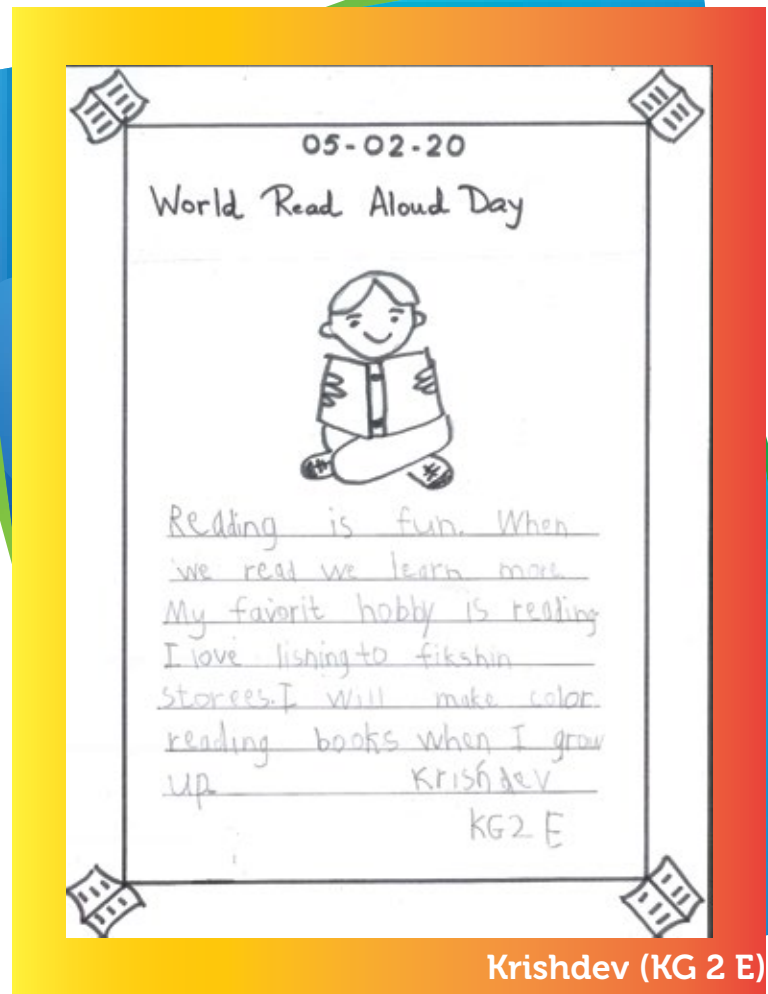 05-02-20
World Read Aloud Day
Reading is fun. When
we read we learn more
My favorit hobby is reading
I love lisning to fikshin
storees. I will make color
reading books when I grow
up. Krishdev
KG2 E
Krishdev (KG 2 E)